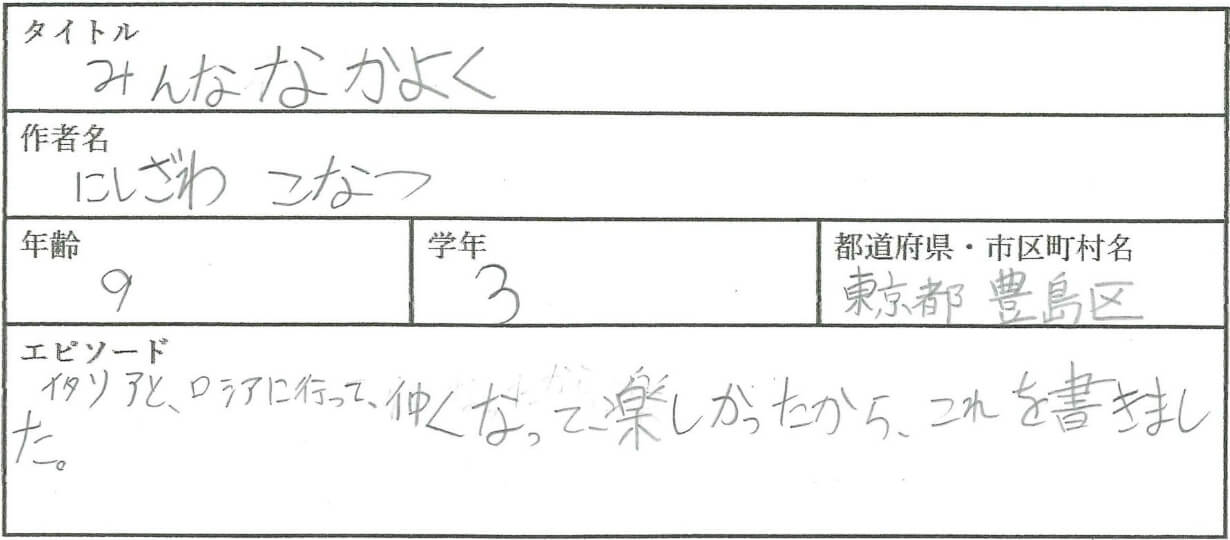 タイトル
みんななかよく
作者名
にしざわ こなつ
年齢
9
学年
3
都道府県・市区町村名
東京都 豊島区
エピソード
イタリアと、ロシアに行って、仲くなって楽しかったから、これを書きまし
た。